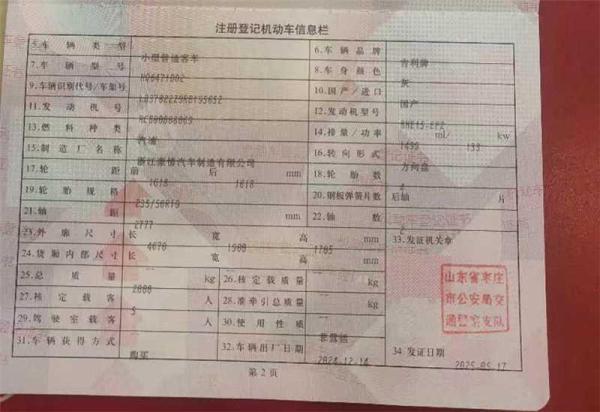 注册登记机动车信息栏
5.车辆类型 小型普通客车 6.车辆品牌 吉利牌
7.车辆型号 HQ6471D02 8.车身颜色 灰
9.车辆识别代号/车架号 10.国产/进口 国产
11.发动机号 12.发动机型号 BHE15-EFZ
13.燃料种类 汽油 14.排量/功率 1499 ml/ 133 kw
15.制造厂名称 浙江豪情汽车制造有限公司 16.转向形式 方向盘
17.轮距 前 1618 后 1618 mm 18.轮胎数 4
19.轮胎规格 235/50R19 20.钢板弹簧片数 后轴 片
21.轴距 2777 mm 22.轴数 2
23.外廓尺寸 长 4670 宽 1900 高 1705 mm 33.发证机关章
24.货厢内部尺寸 长 宽 高 mm
25.总质量 2080 kg 26.核定载质量 -- kg
27.核定载客 5 人 28.准牵引总质量 -- kg
29.驾驶室载客 -- 人 30.使用性质 非营运
31.车辆获得方式 购买 32.车辆出厂日期 2024-12-14 34.发证日期 2025-05-17
山东省枣庄
市公安局交
通警察支队
第2页